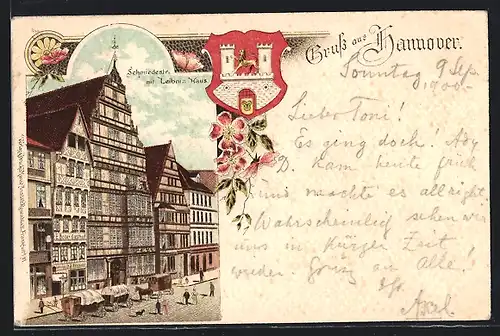 Gruß aus Hannover.
Schmiedestr.
mit Leibniz Haus.
Sonntag 9 Sep.
1900.
Lieber Toni!
Es ging doch!
D. kam heute früh
und machte es allright.
Wahrscheinlich sehen wir
uns in kürzer Zeit
wieder. Gruss an Alle!
Axel